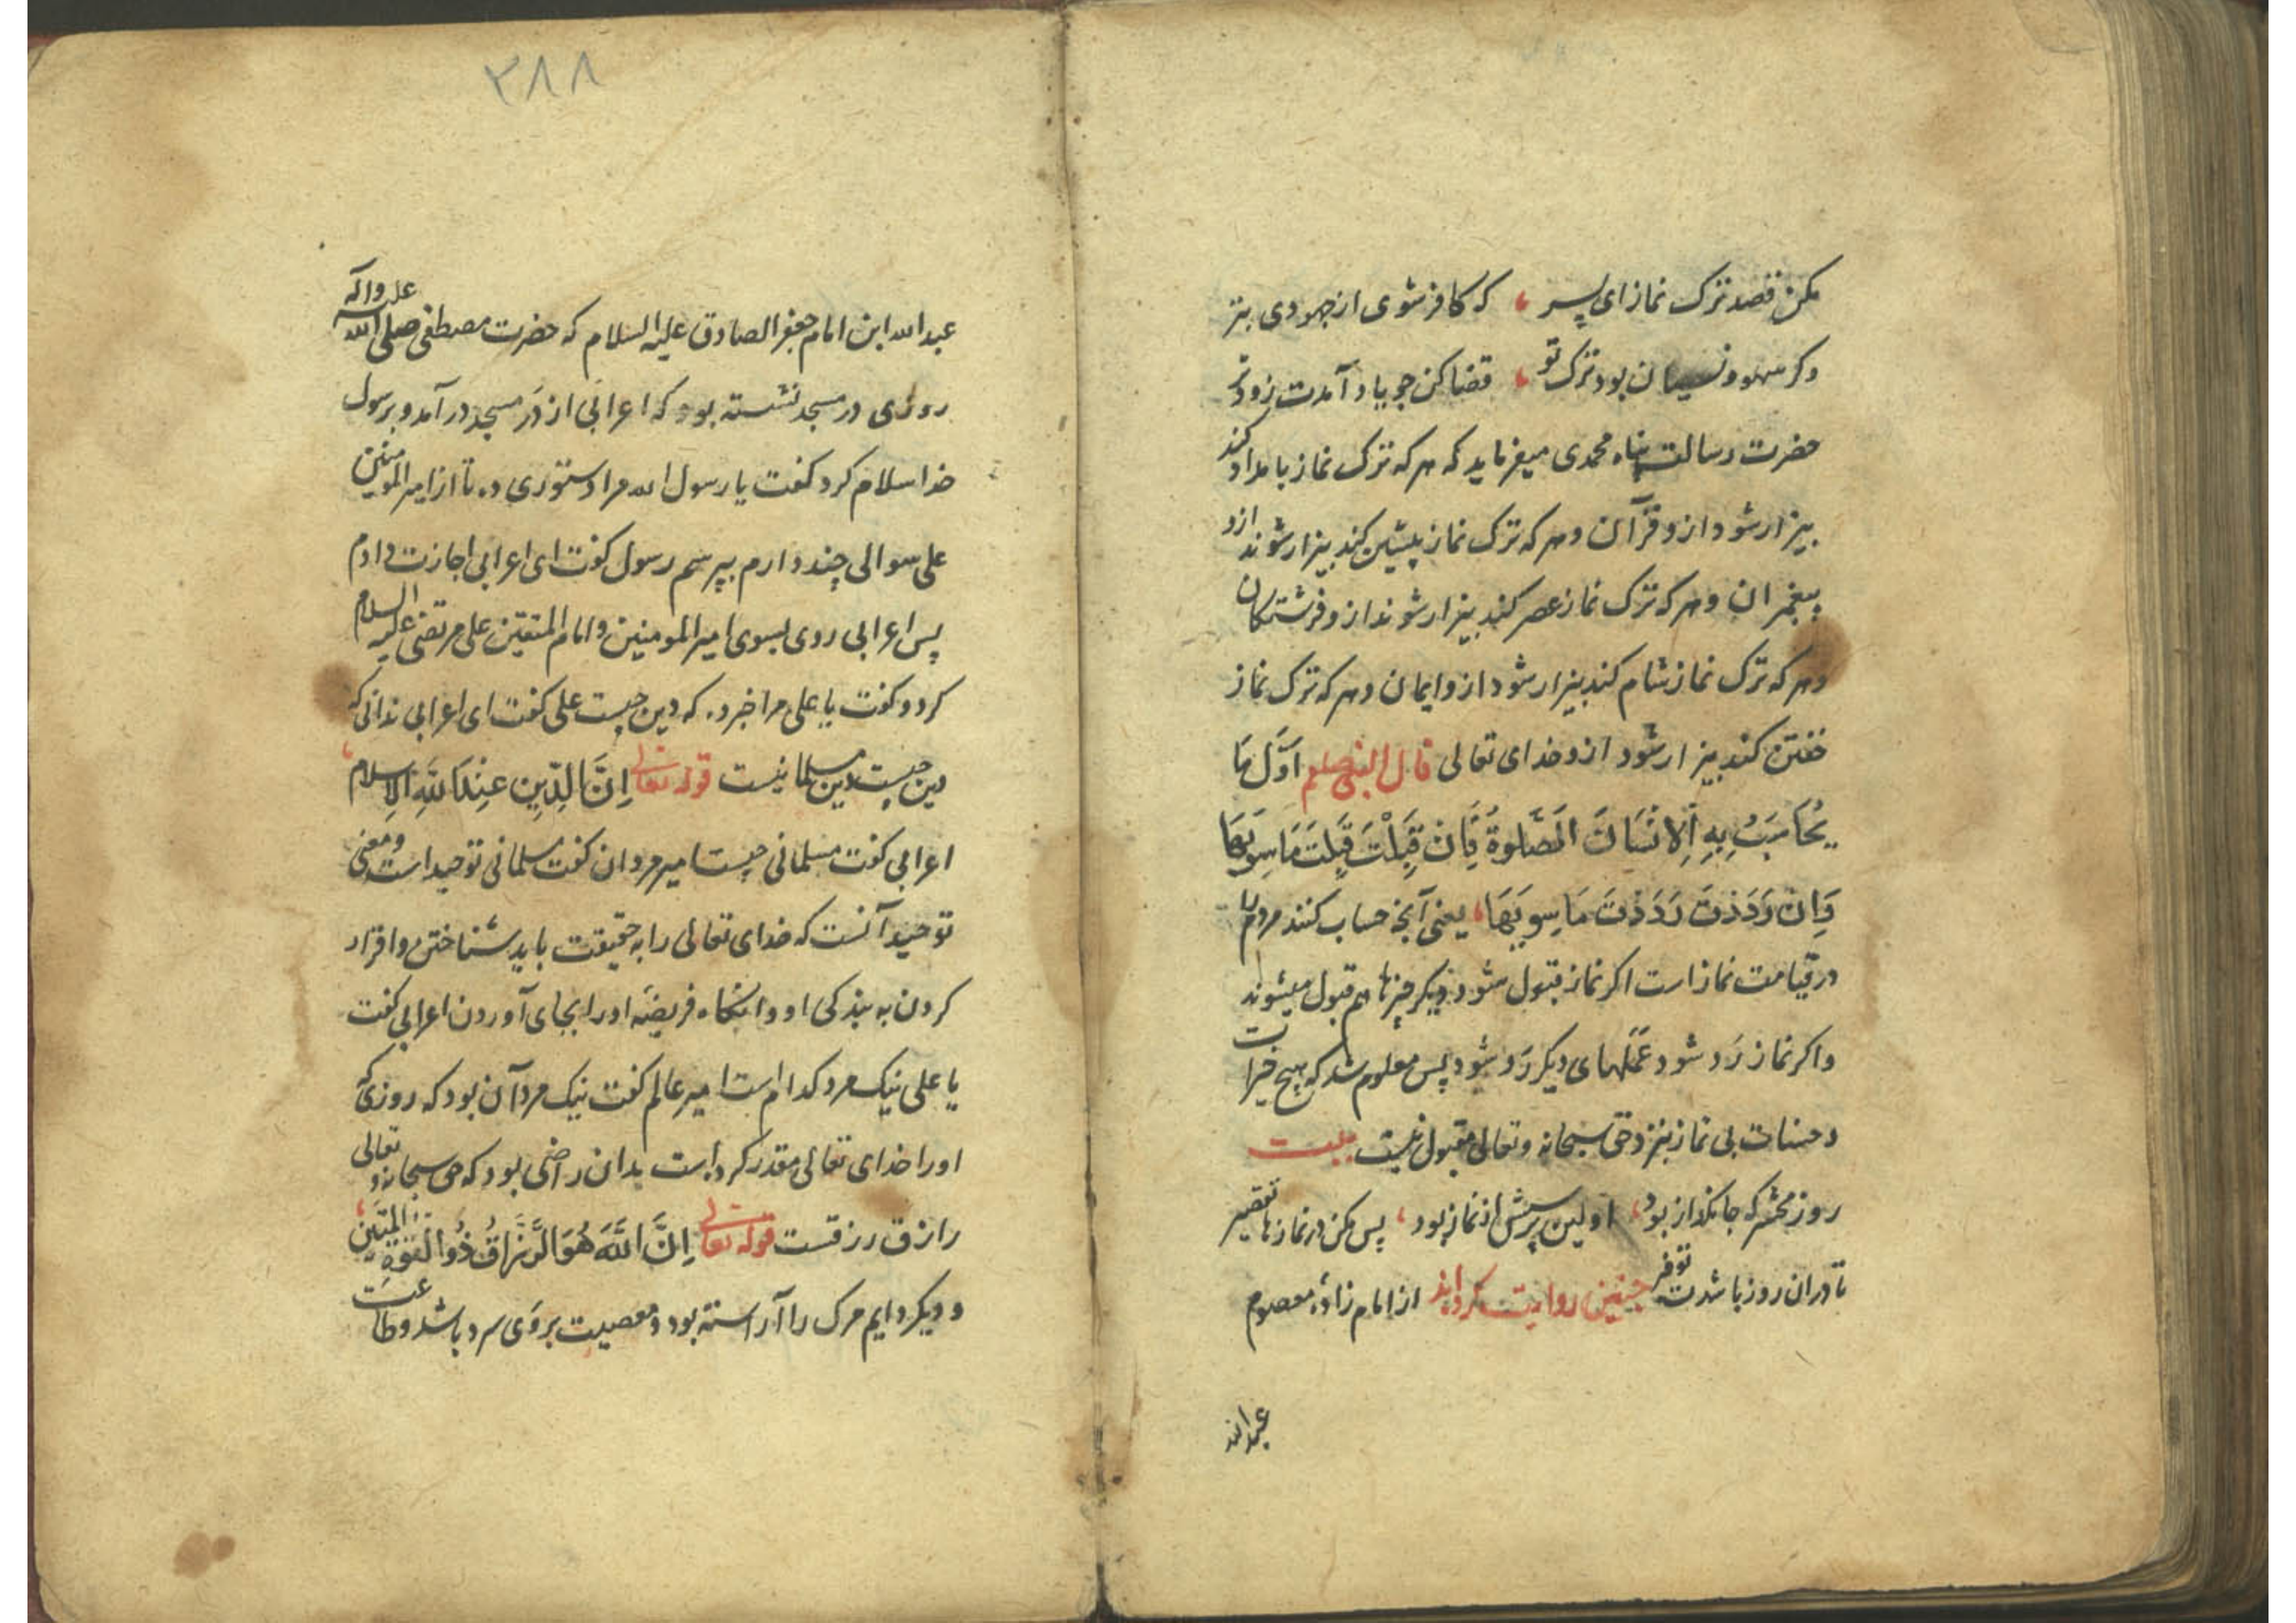 مکن قصد ترک نماز ای پسر ، که کافر شوی از جهودی بتر
وکر سهو ونسیان بود ترک تو ، قضا کن چو یاد آمدت زودتر
حضرت رسالت پناه محمدی میفرماید که هر که ترک نماز بامداد کند
بیزار شود ازو قرآن وهر که ترک نماز پیشین کند بیزار شوند ازو
پیغمبران وهر که ترک نماز عصر کند بیزار شوند ازو فرشتکان
وهر که ترک نماز شام کند بیزار شود ازو ایمان وهر که ترک نماز
خفتن کند بیزار شود ازو خدای تعالی قال النبی صلعم اَوَّلَ مَا
یُحَاسَبُ بِهِ اَلاِنسَانَ الَصَّلوةُ فَاِن قَبِلَتْ قَبِلَتَ مَا سِویهَا
وَاِن رَدَدَتَ رَدَدَتَ مَا سِویهَا، یعنی آنچه حساب کنند مردم را
در قیامت نماز است اکر نماز قبول شود دیکر چیزها هم قبول میشوند
واکر نماز رَد شود عَمَلهای دیکر رَد شود پس معلوم شد که هیچ خیرات
و حسنات بی نماز بنزد حق سبحانه وتعالی مقبول نیست بیت
روز محشر که جانکداز بود ، اولین پرسش از نماز بود ، پس مکن در نمازها تقصیر
تا دران روز باشدت توقیر چنین روایت کرده‌اند از امام زادهٔ معصوم
عبدالله
۲۸۸
عبدالله ابن امام جعفر الصادق علیه السلام که حضرت مصطفی صلی الله علیه واله
روزی در مسجد نشسته بود که اعرابی از دَر مسجد در آمد وبرسول
خدا سلام کرد کفت یا رسول الله مرا دستوری ده تا از امیر المومنین
علی سوالی چند دارم بپرسم رسول کفت ای اعرابی اجازت دادم
پس اعرابی روی بسوی امیر المومنین وامام المتقین علی مرتضی علیه السلام
کرد و کفت یا علی مرا خبر ده که دین چیست علی کفت ای اعرابی ندانی که
دین چیست دین مسلمانیست قوله تعالی اِنَّ الدِّینِ عِندَ اللهِ الاِسلام ،
اعرابی کفت مسلمانی چیست امیر مردان کفت مسلمانی توحید است ومعنی
توحید آنست که خدای تعالی را به حقیقت باید شناختن واقرار
کردن به بندکی او وانکاه فریضهٔ اورا بجای آوردن اعرابی کفت
یا علی نیک مرد کدام است امیر عالم کفت نیک مرد آن بود که روزی که
اورا خدای تعالی مقدر کرده است بدان راضی بود که حق سبحانه و تعالی
رازق رزقست قوله تعالی اِنَّ اللَّهَ هُوَ الرَّزَّاقُ ذُو القُوَّةِ المَتِین ،
و دیکر دایم مرک را آراسته بود ومعصیت بروَی سرد باشد وطاعت